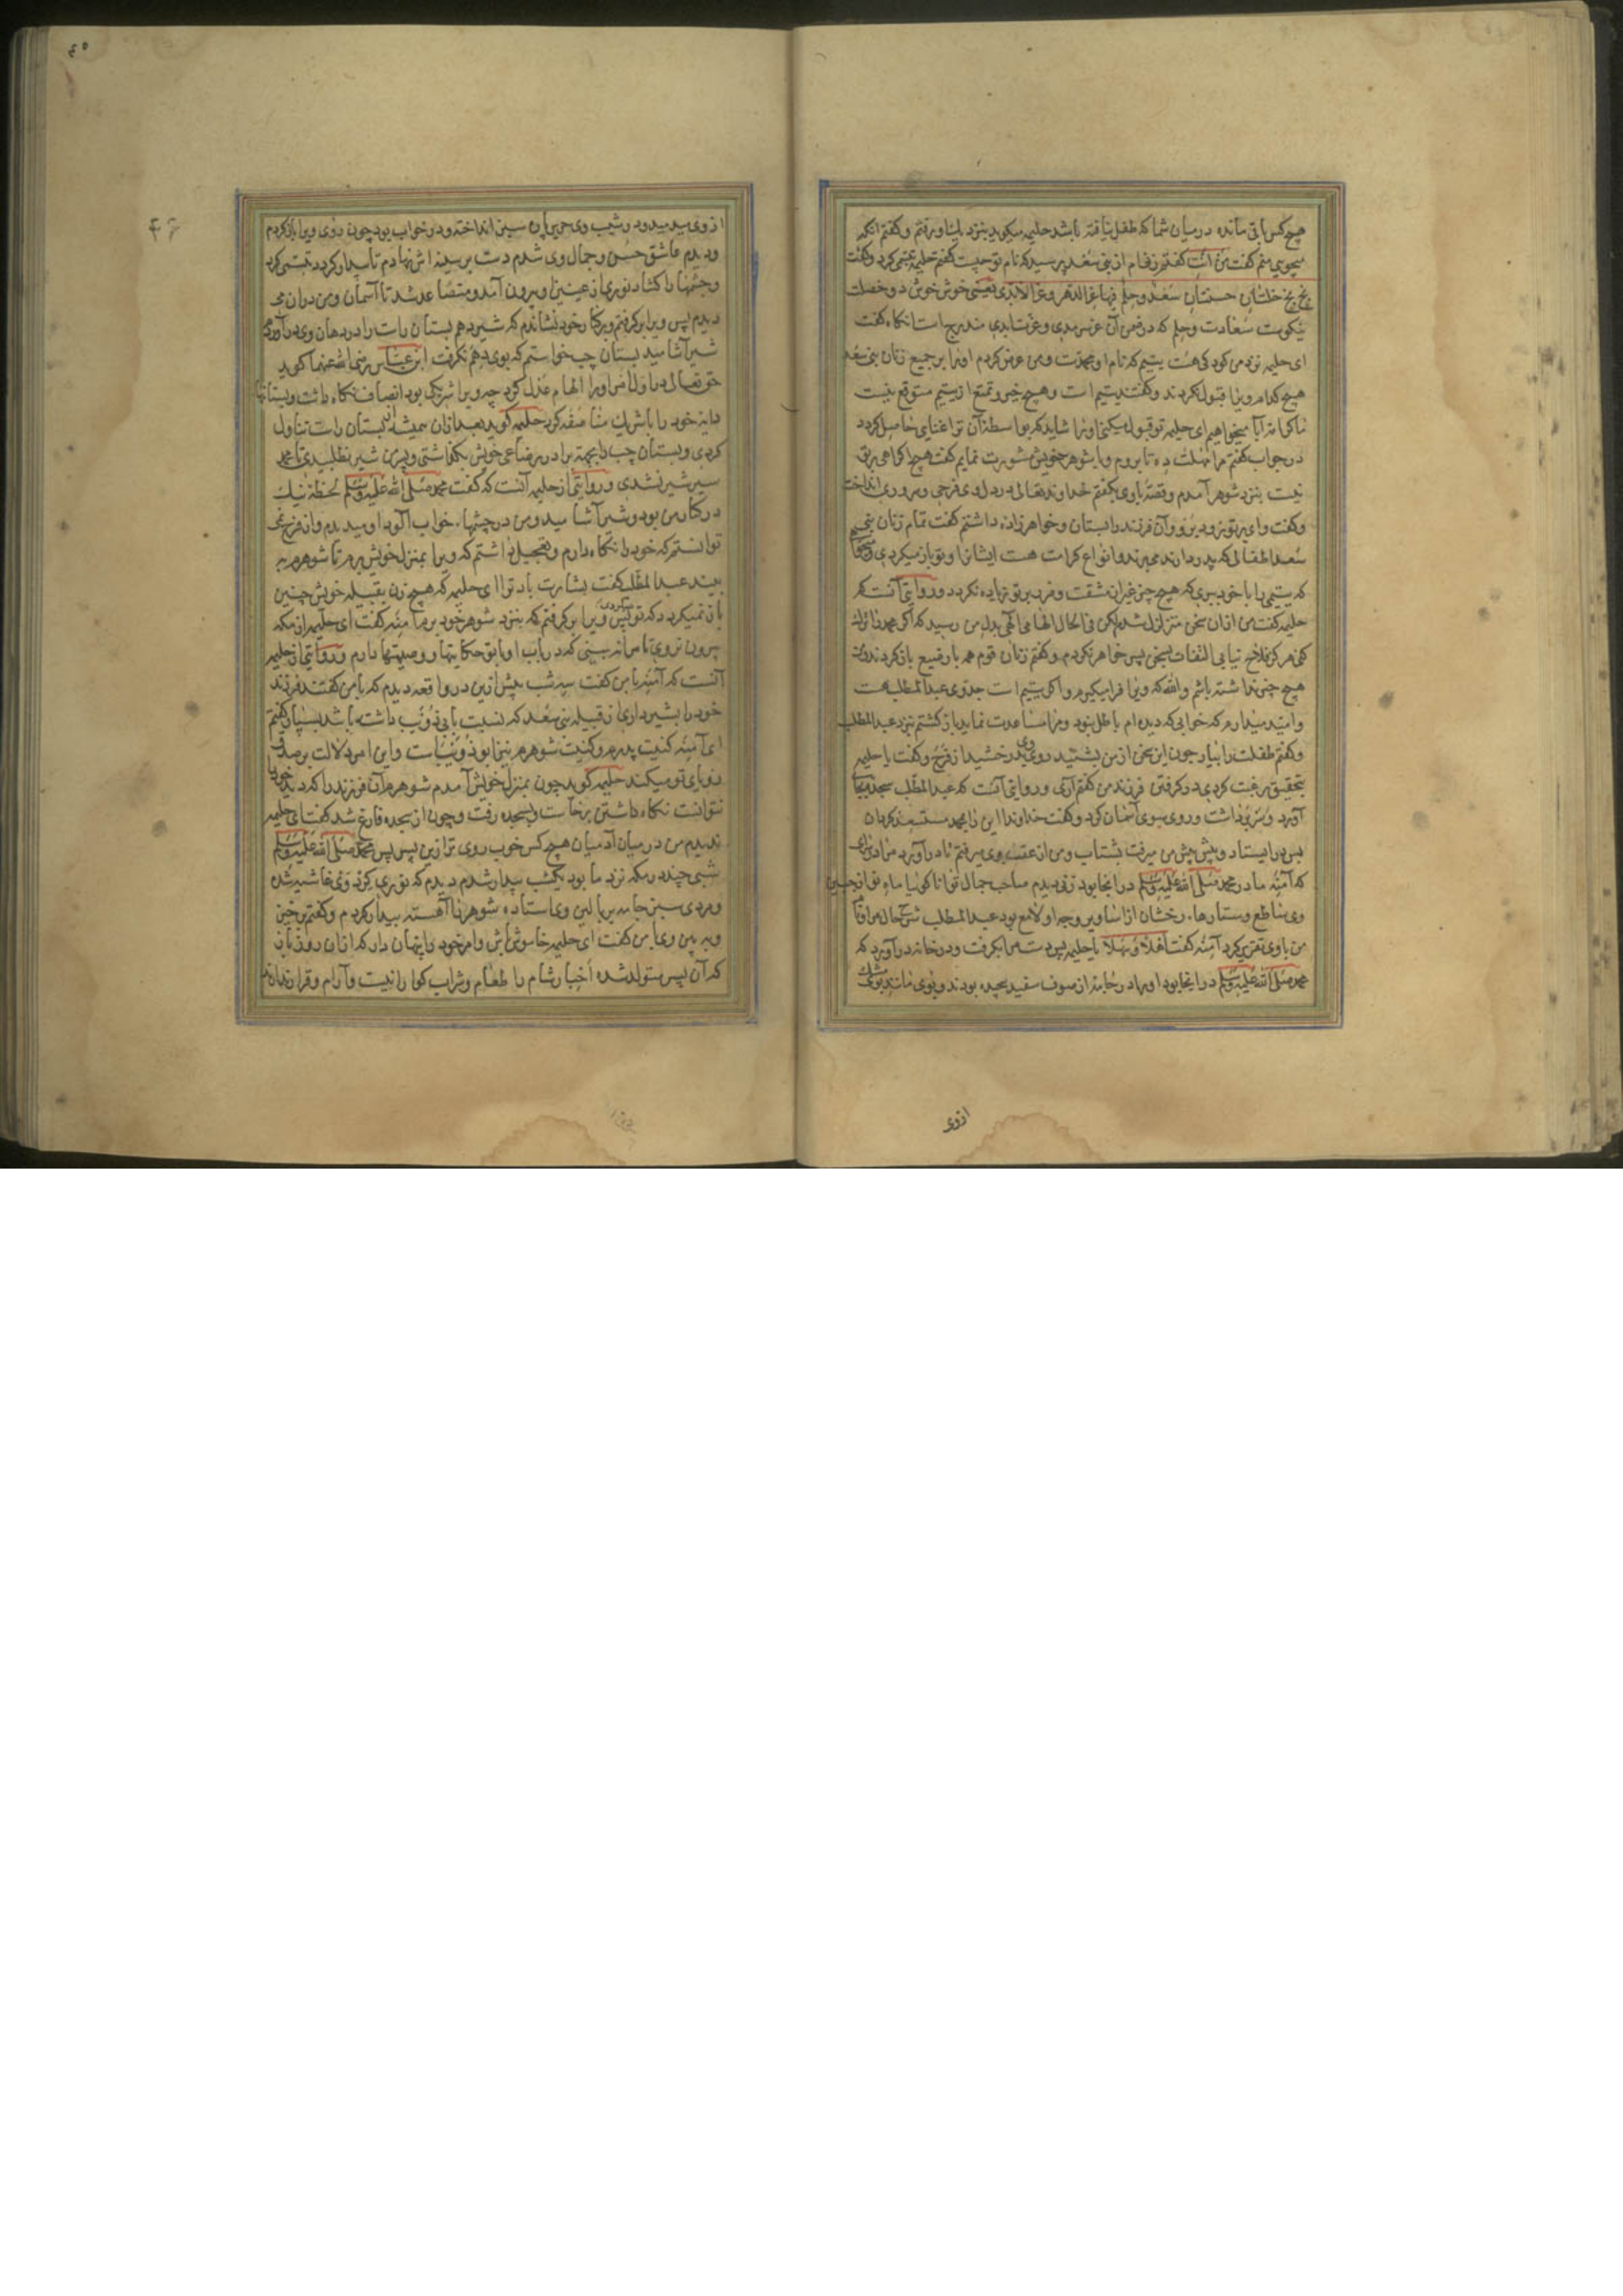 هیچ کس باقی مانده در میان شما که طفل نیافته باشد حلیمه میکوید بنزد یک او رفتم و کفتم انکه
میجویی منم کفت من انت کفتم زنی ام از بنی سعد پرسید که نام تو چیست کفتم حلیمه تبسمی کرد و کفت
بخ بخ خلتان حسنتان سعد و حلم فیهما عز الدهر و عز الابدی یعنی خوش خوش دو خصلت
نیکوست سعادت و حلم که در ضمن آن عز سرمدی و عزت ابدی مندرج است انکاه کفت
ای حلیمه نزد من کودکی هست یتیم که نام او محمدست و من عرض کردم او را بر جمیع زنان بنی سعد
هیچ کدام ویرا قبول نکردند و کفتند یتیم است و هیچ خیر و تمتع از یتیم متوقع نیست
ای حلیمه تو قبول میکنی او را شاید که بواسطه آن ترا غنای حاصل کردد
در جواب کفتم مرا مهلت ده تا بروم و با شوهر خویش مشورت نمایم کفت هیچ اکراهی بر تو
نیست بنزد شوهر آمدم و قصه با وی بکفتم خداوند تعالی در دل وی فرحی و سروری انداخت
و کفت وای بر تو زود برو و آن فرزند را بستان و خواهرزاده داشتم کفت تمام زنان بنی
سعد اطفالی که پدر دارند میبرند و انواع کرامت هست ایشانرا و تو باز میکردی
که یتیمی را با خود ببری که هیچ چیز غیر از مشقت و فرد بر تو زیاده نکردد و روایتی آنست که
حلیمه کفت من ازان سخن متزلزل شدم لکن فی الحال الهامی الهی بدل من رسید که اکر محمد را ترک
کنی هرکز فلاح نیابی التفات بسخن پسر خواهر نکردم و کفتم زنان قوم همه با رضیع باز کردند و من
هیچ چیز نداشته باشم والله که ویرا فرا میکیرم و اکر یتیم است جد وی عبدالمطلب هست
و امید میدارم که خوابی که دیده ام باطل نبود و مرا مساعدت نماید باز کشتم بنزد عبدالمطلب
و کفتم طفلت را بیار چون این سخن از من بشنید روی وی بدرخشید از فرح و کفت یا حلیمه
بتحقیق رغبت کردی در کرفتن فرزند من کفتم آری و روایتی آنست که عبدالمطلب سجده بجا
آورد و سر برداشت و روی بسوی آسمان کرد و کفت خداوندا این را بمحمد مستسعد کردان
پس بر ایستاد و پیش پیش من میرفت بشتاب و من از عقب وی میرفتم تا در آورد مرا در سرای
که آمنه مادر محمد صلی الله علیه وسلم در انجا بود زنی دیدم صاحب جمال تو انا کوئیا ماه تو از جبین
وی ساطع و ستارها درخشان از اساریر وجه او لامع بود عبدالمطلب شرح حال مرا تمام
من با وی تقریر کرد آمنه کفت اهلا و سهلا یا حلیمه پس دست مرا بکرفت و در خانه در آورد که
محمد صلی الله علیه وسلم در انجا بود او را در جامه از صوف سفید پیچیده بودند و بوی مانند بوی مشک
از وی
۴۵
۴۶
از وی میدمید و در شیب وی حریر پاره سبز انداخته و در خواب بود چون روی ویرا باز کردم
و دیدم عاشق حسن و جمال وی شدم دست بر سینه اش نهادم تا بیدار کردد تبسمی کرد
و چشمها را کشاد نوری از عینین او بیرون آمد و متصاعد شد تا آسمان و من دران می
دیدم پس ویرا بر کرفتم و بر کنار خود نشاندم که شیر دهم پستان راست را در دهان وی در آوردم
شیر آشامید پستان چپ خواستم که بوی دهم نکرفت ابن عباس رضی الله عنهما کوید
حق تعالی در اول امر او را الهام عدل کرد چه ویرا شریک بود انصاف نکاه داشت و پستانها
دایه خود را با شریک مناصفه کرد حلیمه کوید بعد ازان همیشه از پستان راست تناول
کردی و پستان چپ را بجهت برادر رضاعی خویش بکذاشتی و پسر من شیر نطلبیدی تا محمد
سیر شیر نشدی و روایتی از حلیمه آنست که کفت محمد صلی الله علیه وسلم لحظه نیک
در کنار من بود و شیر آشامید و من در چشمهاء خواب آلود او میدیدم و از فرح نمی
توانستم که خود را نکاه دارم و تعجیل داشتم که ویرا بمنزل خویش برم تا شوهرم به
بیند عبدالمطلب کفت بشارت باد ترا ای حلیمه که هیچ زن بقبیله خویش چنین
باز نمیکردد که تو میکردی پس ویرا بر کرفتم که بنزد شوهر خود برم آمنه کفت ای حلیمه از مکه
بیرون نروی تا مرا نه بینی که در باب او با تو حکایتها و وصیتها دارم و روایتی از حلیمه
آنست که آمنه با من کفت سه شب پیش ازین در واقعه دیدم که با من کفتند فرزند
خود را بشیر داری از قبیله بنی سعد که نسبت بابی ذؤیب داشته باشد بسپار کفتم
ای آمنه کنیت پدرم و کنیت شوهرم نیز ابو ذؤیب است و این امر دلالت بر صدق
رؤیای تو میکند حلیمه کوید چون بمنزل خویش آمدم شوهرم آن فرزند را که دید خود را
نتوانست نکاه داشتن برخاست و بسجده رفت و چون از سجده فارغ شد کفت ای حلیمه
ندیدم من در میان آدمیان هیچ کس خوب روی تر ازین پسر پس محمد صلی الله علیه وسلم
شبی چند در مکه نزد ما بود یکشب بیدار شدم دیدم که نوری کرد وی غاشیه شده
و مردی سبز جامه بر بالین وی استاده شوهر را آهسته بیدار کردم و کفتم برخیز
و به بین وی با من کفت ای حلیمه خاموش باش و امر خود را پنهان دار که ازان روز باز
که آن پسر متولد شده اخبار شام را طعام و شراب کوارا نیست و آرام و قرار ندارند